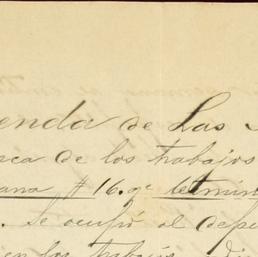 enda de Las
rca de los trabajos
ana # 16. qe termin
. Se ocupó el depe
en los trabajos